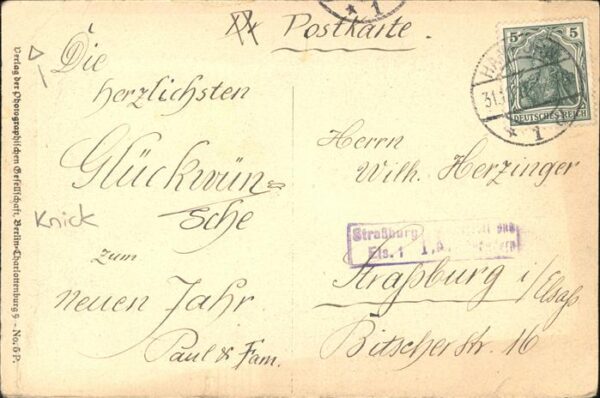 Postkarte.
Die
herzlichsten
Glückwün=
sche
zum
neuen Jahr
Paul & Fam.
Knick
Verlag der Photographischen Gesellschaft, Berlin-Charlottenburg 9 - No. 6 P.
5 5
DEUTSCHES REICH
31.
* 1
* 1
Herrn
Wilh. Herzinger
Straßburg
Els. 1
Straßburg i/Elsaß
Bitscherstr. 16